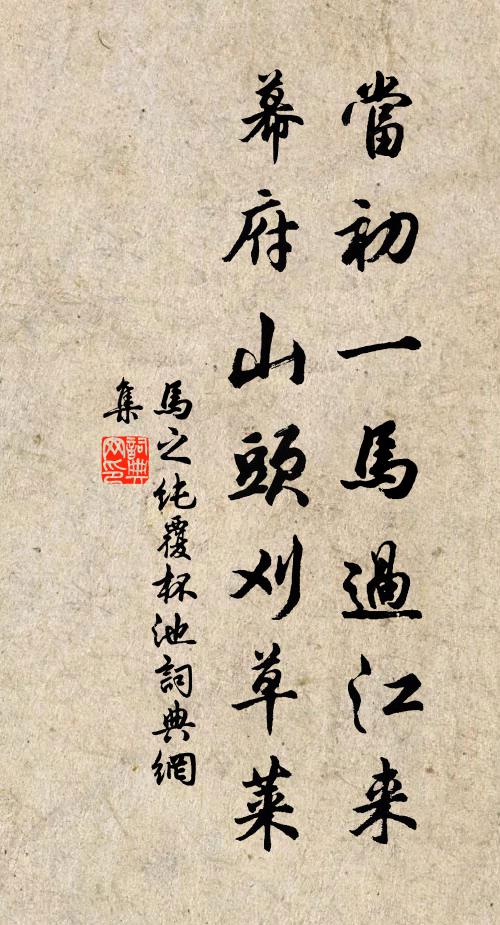 當初一馬過江来
幕府山頭刈草萊
馬之純覆杯池詞典網
集
詞典網印